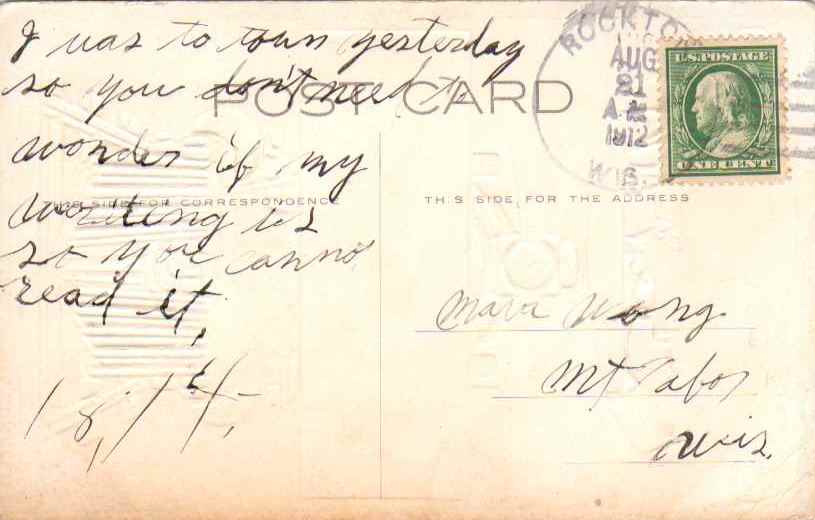 I was to town yesterday
so you don't need to
wonder if my
writing is
so you cannot
read it,
POST CARD
THIS SIDE FOR CORRESPONDENCE
THIS SIDE FOR THE ADDRESS
ROCKTON
AUG
21
1912
WIS.
U.S. POSTAGE
ONE CENT
Wong
Mt Tabor
Wis.